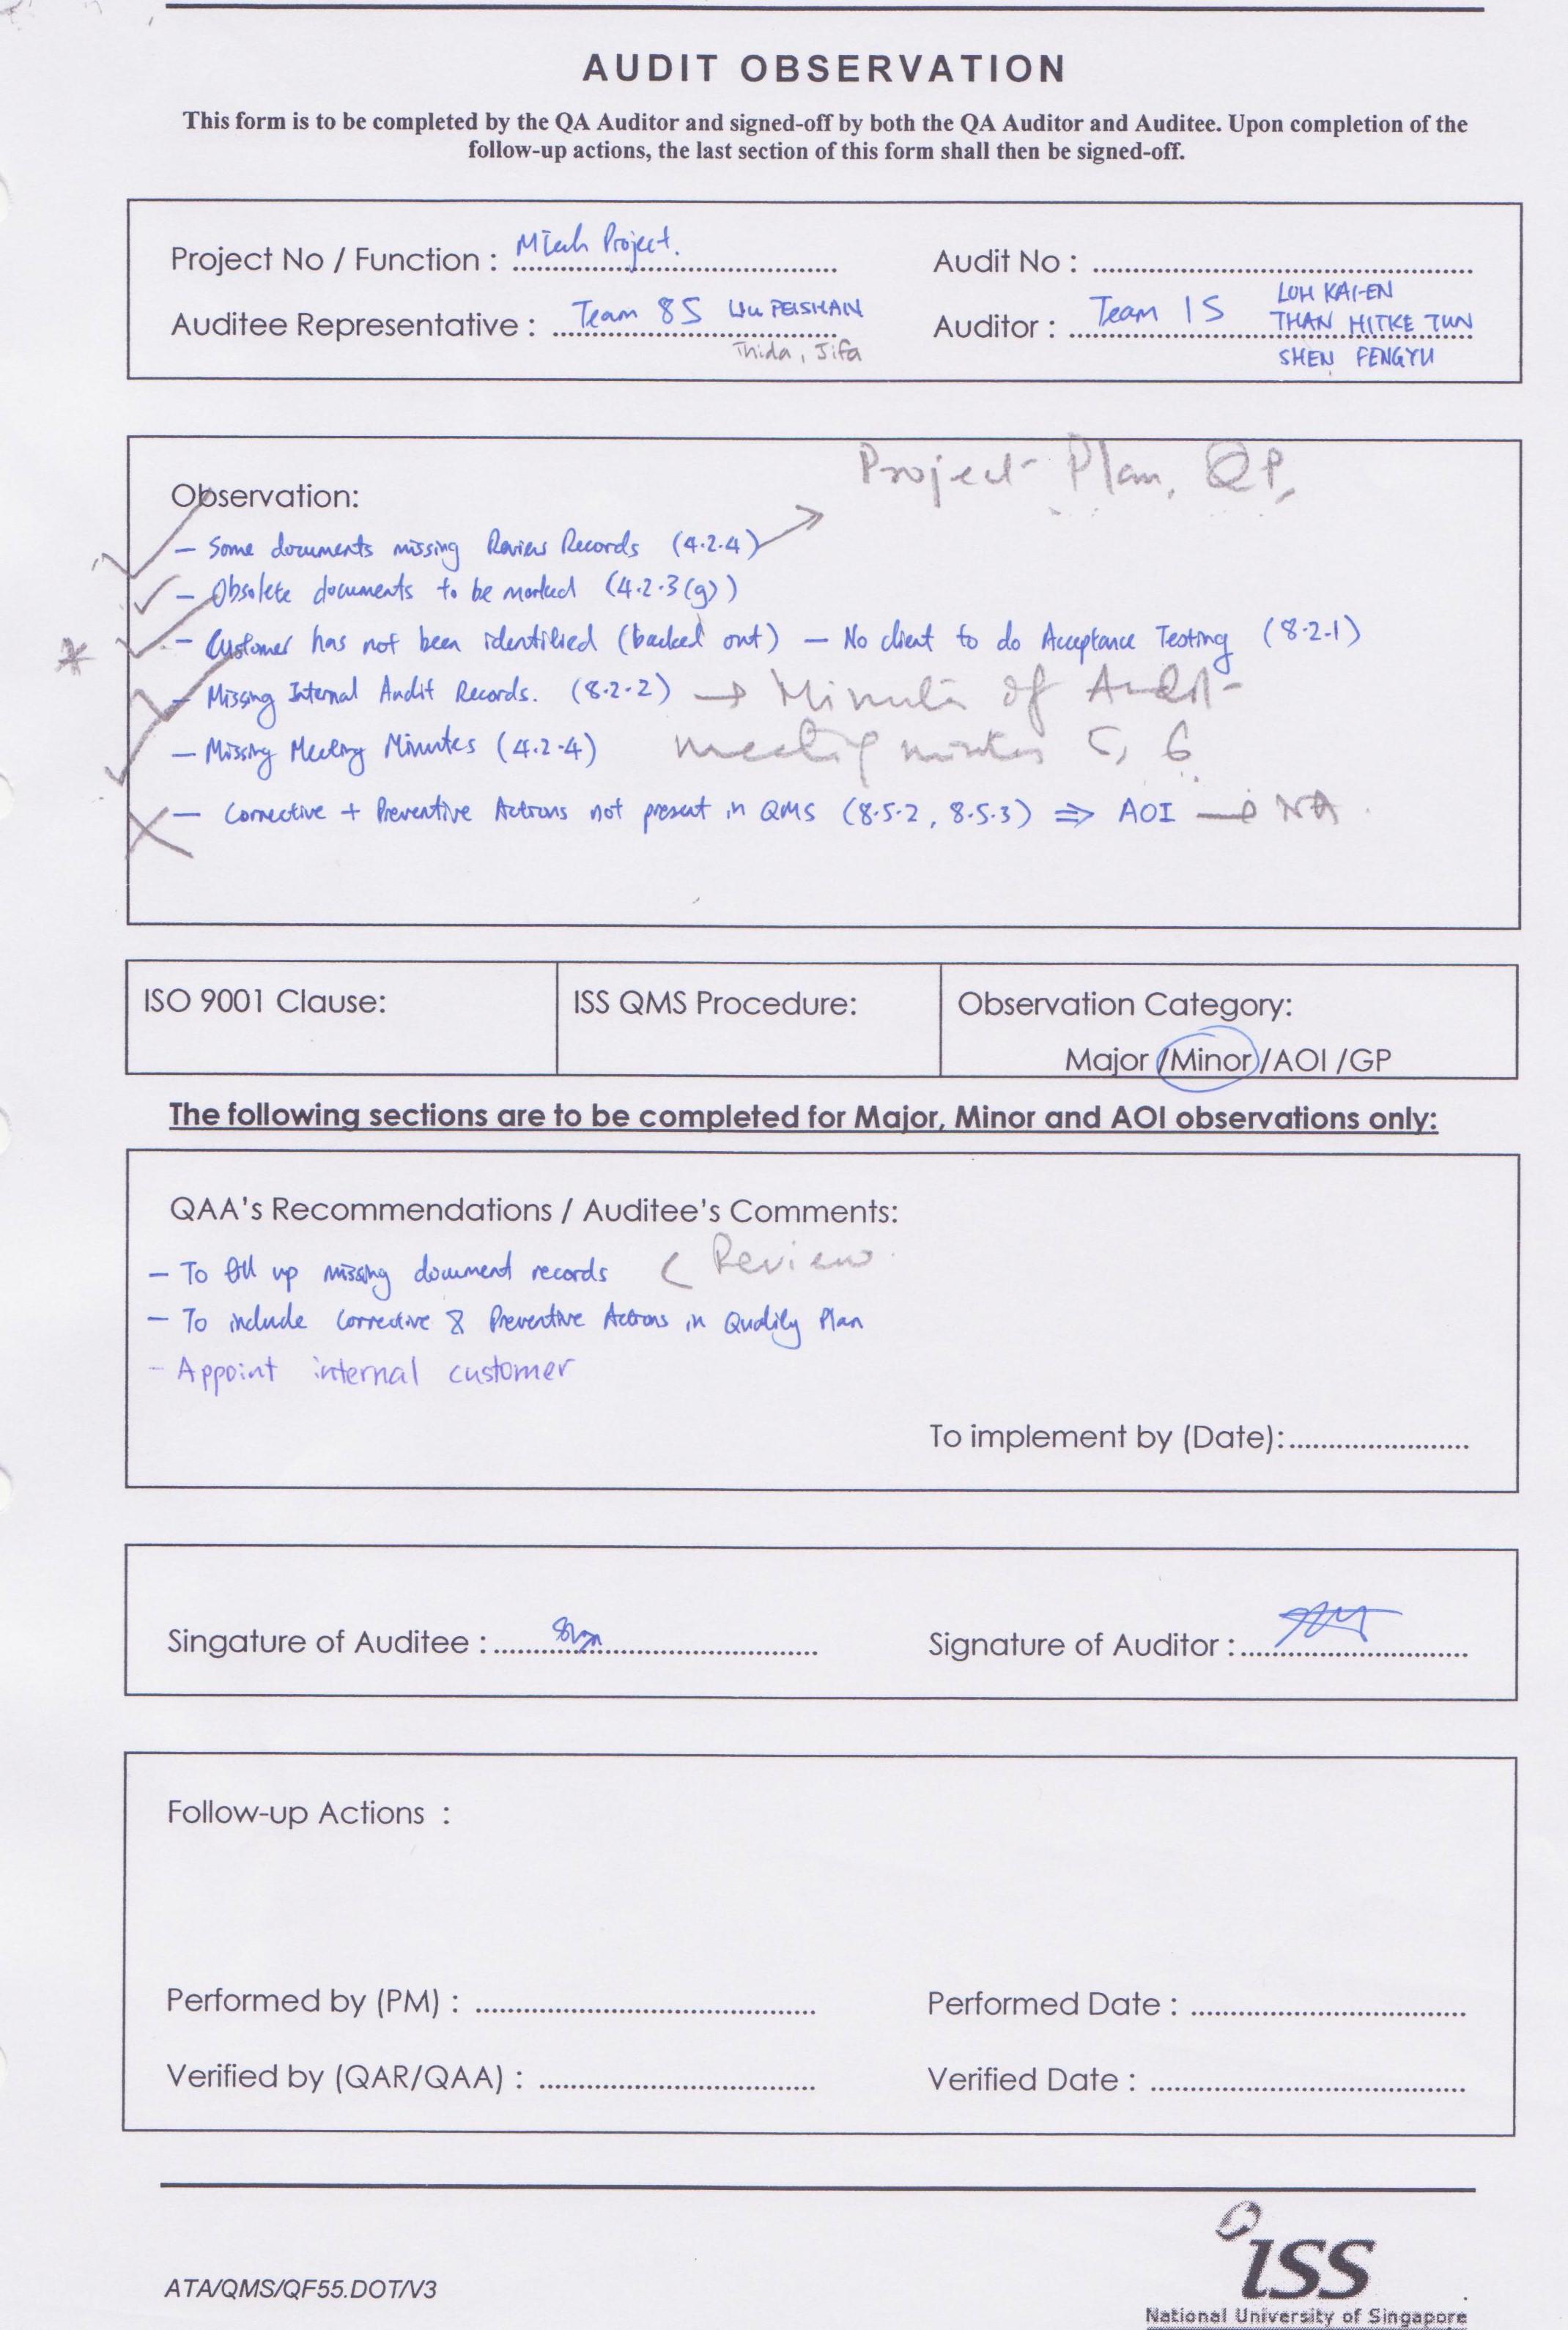 AUDIT OBSERVATION
This form is to be completed by the QA Auditor and signed-off by both the QA Auditor and Auditee. Upon completion of the
follow-up actions, the last section of this form shall then be signed-off.
Project No / Function : Project.
Audit No :
Auditee Representative : Team 8S LIU PEISHAN
Thida, Jifa
Auditor : Team 1S LOH KAI-EN
THAN HTIKE TUN
SHEN FENGYU
Project Plan, QP,
Observation:
- Some documents missing Review Records (4.2.4)
- Obsolete documents to be marked (4.2.3(g))
* - Customer has not been identified (backed out) - No client to do Acceptance Testing (8.2.1)
- Missing Internal Audit Records. (8.2.2) → Minutes of Audit
- Missing Meeting Minutes (4.2.4) meeting minutes 5, 6
- Corrective + Preventive Actions not present in QMS (8.5.2, 8.5.3) ⇒ AOI → NA.
ISO 9001 Clause:
ISS QMS Procedure:
Observation Category:
Major /Minor /AOI /GP
The following sections are to be completed for Major, Minor and AOI observations only:
QAA's Recommendations / Auditee's Comments:
- To fill up missing document records ( Review
- To include Corrective & Preventive Actions in Quality Plan
- Appoint internal customer
To implement by (Date):
Singature of Auditee :
Signature of Auditor :
Follow-up Actions :
Performed by (PM) :
Performed Date :
Verified by (QAR/QAA) :
Verified Date :
ATA/QMS/QF55.DOT/V3
iss
National University of Singapore